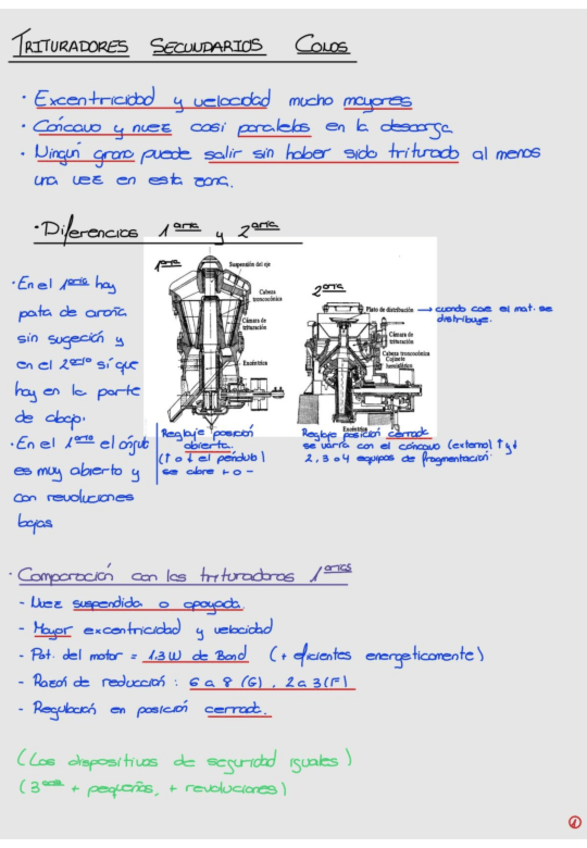 TRITURADORES SECUNDARIOS COLOS
· Excentricidad y velocidad mucho mayores
· Cóncavo y nuez casi paralelos en la descarga
· Ningún grano puede salir sin haber sido triturado al menos
una vez en esta zona.
· Diferencias 1arios y 2arios
1arios
Suspensión del eje
Cabeza
troncocónica
Cámara de
trituración
Excéntrica
2arios
Plato de distribución → cuando cae el mat. se
distribuye.
Cámara de
trituración
Cabeza troncocónica
Cojinete
hemisférico
Excéntrica
· En el 1ario hay
pata de araña
sin sugeción y
en el 2ario sí que
hay en la parte
de abajo.
· En el 1ario el ángulo
es muy abierto y
con revoluciones
bajas
Reglaje posición
abierta.
(↑ o ↓ el péndulo)
se abre + o -
Reglaje posición cerrada
se varía con el cóncavo (externo) ↑ y ↓
2, 3 o 4 equipos de fragmentación.
· Comparación con los trituradoras 1arios
- Nuez suspendida o apoyada.
- Mayor excentricidad y velocidad
- Pot. del motor = 1.3 W de Bond (+ eficientes energeticamente)
- Razón de reducción : 6 a 8 (G) , 2 a 3 (F)
- Regulación en posición cerrada.
(Los dispositivos de seguridad iguales)
(3arios + pequeños, + revoluciones)
1